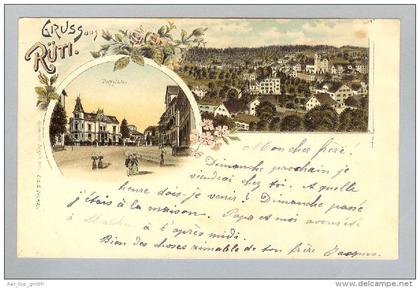 GRUSS aus
RÜTI.
Mon cher frère!
Dimanche prochain je
viendrai chez toi. A quelle
heure dois-je venir! Dimanche passé
j'étais à la maison. Papa et moi
à l'après midi.
Bien des choses aimable de ton frère
www.delcampe.net